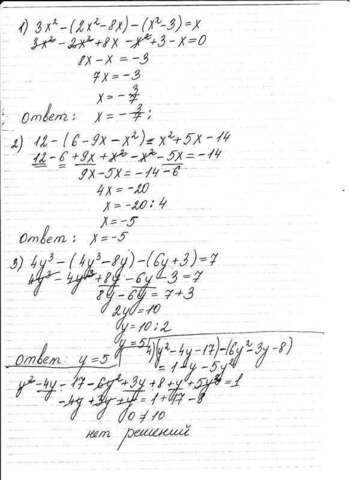 1) 3x² - (2x² - 8x) - (x² - 3) = x
3x² - 2x² + 8x - x² + 3 - x = 0
8x - x = -3
7x = -3
x = -3/7
Ответ: x = -3/7;
2) 12 - (6 - 9x - x²) = x² + 5x - 14
12 - 6 + 9x + x² - x² - 5x = -14
9x - 5x = -14 - 6
4x = -20
x = -20 : 4
x = -5
Ответ: x = -5
3) 4y³ - (4y³ - 8y) - (6y + 3) = 7
4y³ - 4y³ + 8y - 6y - 3 = 7
8y - 6y = 7 + 3
2y = 10
y = 10 : 2
y = 5
Ответ: y = 5
4) (y² - 4y - 17) - (6y² - 3y - 8)
= 1 - y - 5y²
y² - 4y - 17 - 6y² + 3y + 8 + y + 5y² = 1
-4y + 3y + y = 1 + 17 - 8
0 ≠ 10
нет решений